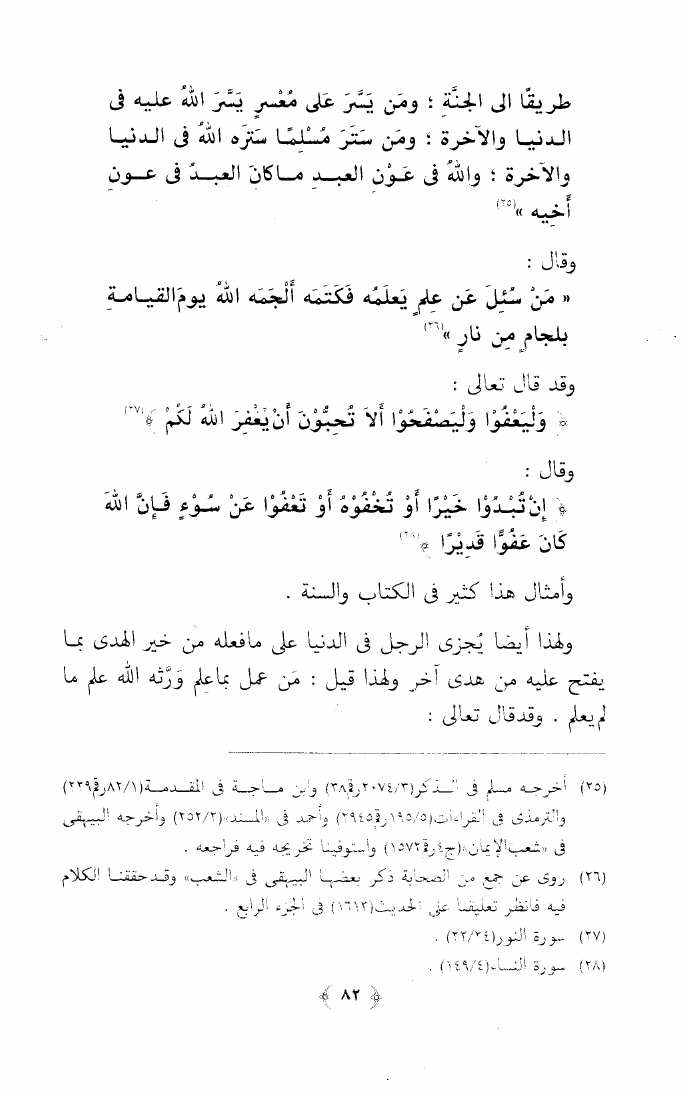 طريقًا الى الجنَّةِ ؛ ومَن يَسَّرَ عَلى مُعْسرٍ يَسَّرَ اللهُ عليه فى
الدنيـا والآخرة ؛ ومَن سَتَرَ مُسْلِمًـا سَتَرَه اللهُ فى الـدنيـا
والآخرة ؛ واللهُ فى عَـوْنِ العبـدِ مـاكانَ العبـدُ فى عـونِ
أخيه »(٢٥)
وقال :
« مَنْ سُئِلَ عَن عِلمٍ يَعلَمُه فَكَتمَه أَلْجَمَه اللهُ يومَ القيـامـةِ
بلجامٍ مِن نارٍ »(٢٦)
وقد قال تعالى :
﴿ وَلْيَعْفُوْا وَلْيَصْفَحُوْا أَلاَ تُحِبُّوْنَ أَنْ يَغْفِرَ اللهُ لَكُمْ ﴾(٢٧)
وقال :
﴿ إِنْ تُبْـدُوْا خَيْرًا أَوْ تُخْفُوْهُ أَوْ تَعْفُوْا عَنْ سُوْءٍ فَـإِنَّ اللهَ
كَانَ عَفُوًّا قَدِيْرًا ﴾(٢٨)
وأمثال هذا كثير فى الكتاب والسنة .
ولهذا أيضا يُجزى الرجل فى الدنيا على مافعله من خير الهدى بمـا
يفتح عليه من هدى آخر ولهذا قيل : مَن عمل بماعلم وَرَّثه الله علم ما
لم يعلم . وقدقال تعالى :
(٢٥) أخرجـه مسلم فى الـذكر(٢٠٧٤/٣رقم٣٨) وابن مـاجـة فى المقـدمـة(٨٢/١رقم٢٢٩)
والترمذى فى القراءات(١٩٥/٥رقم٢٩٤٥) وأحمد فى «المسند»(٢٥٢/٢) وأخرجه البيهقى
فى «شعب الإيمان»(ج٤رقم١٥٧٢) واستوفينا تخريجه فيه فراجعه .
(٢٦) روى عن جمع من الصحابة ذكر بعضهـا البيهقى فى «الشعب» وقـدحققنـا الكلام
فيه فانظر تعليقنا على الحديث(١٦١٢) فى الجزء الرابع .
(٢٧) سورة النور(٢٢/٢٤) .
(٢٨) سورة النساء(١٤٩/٤) .
﴿ ٨٢ ﴾